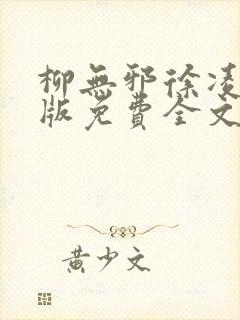 柳無邪徐凌
版免費全文
黃少文